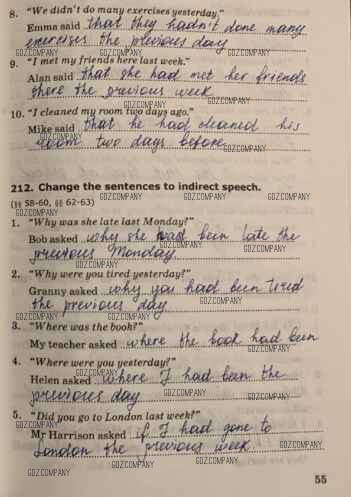 8. "We didn't do many exercises yesterday."
Emma said that they hadn't done many
exercises the previous day
GDZCOMPANY GDZCOMPANY GDZCOMPANY
9. "I met my friends here last week."
Alan said that she had met her friends
there the previous week
GDZCOMPANY GDZCOMPANY
10. "I cleaned my room two days ago."
GDZCOMPANY
Mike said that he had cleaned his
GDZCOMPANY
room two days before
GDZCOMPANY
212. Change the sentences to indirect speech.
(§§ 58-60, §§ 62-63) GDZCOMPANY GDZCOMPANY GDZCOMPANY
GDZCOMPANY
1. "Why was she late last Monday?"
Bob asked why she had been late the
GDZCOMPANY GDZCOMPANY
previous Monday
GDZCOMPANY
2. "Why were you tired yesterday?"
Granny asked why you had been tired
the previous day GDZCOMPANY
GDZCOMPANY
3. "Where was the book?"
My teacher asked where the book had been
GDZCOMPANY
4. "Where were you yesterday?"
GDZCOMPANY
Helen asked where I had been the
previous day GDZCOMPANY
GDZCOMPANY
5. "Did you go to London last week?"
GDZCOMPANY
Mr Harrison asked if I had gone to
GDZCOMPANY
London the previous week GDZCOMPANY
GDZCOMPANY GDZCOMPANY GDZCOMPANY
55
GDZCOMPANY